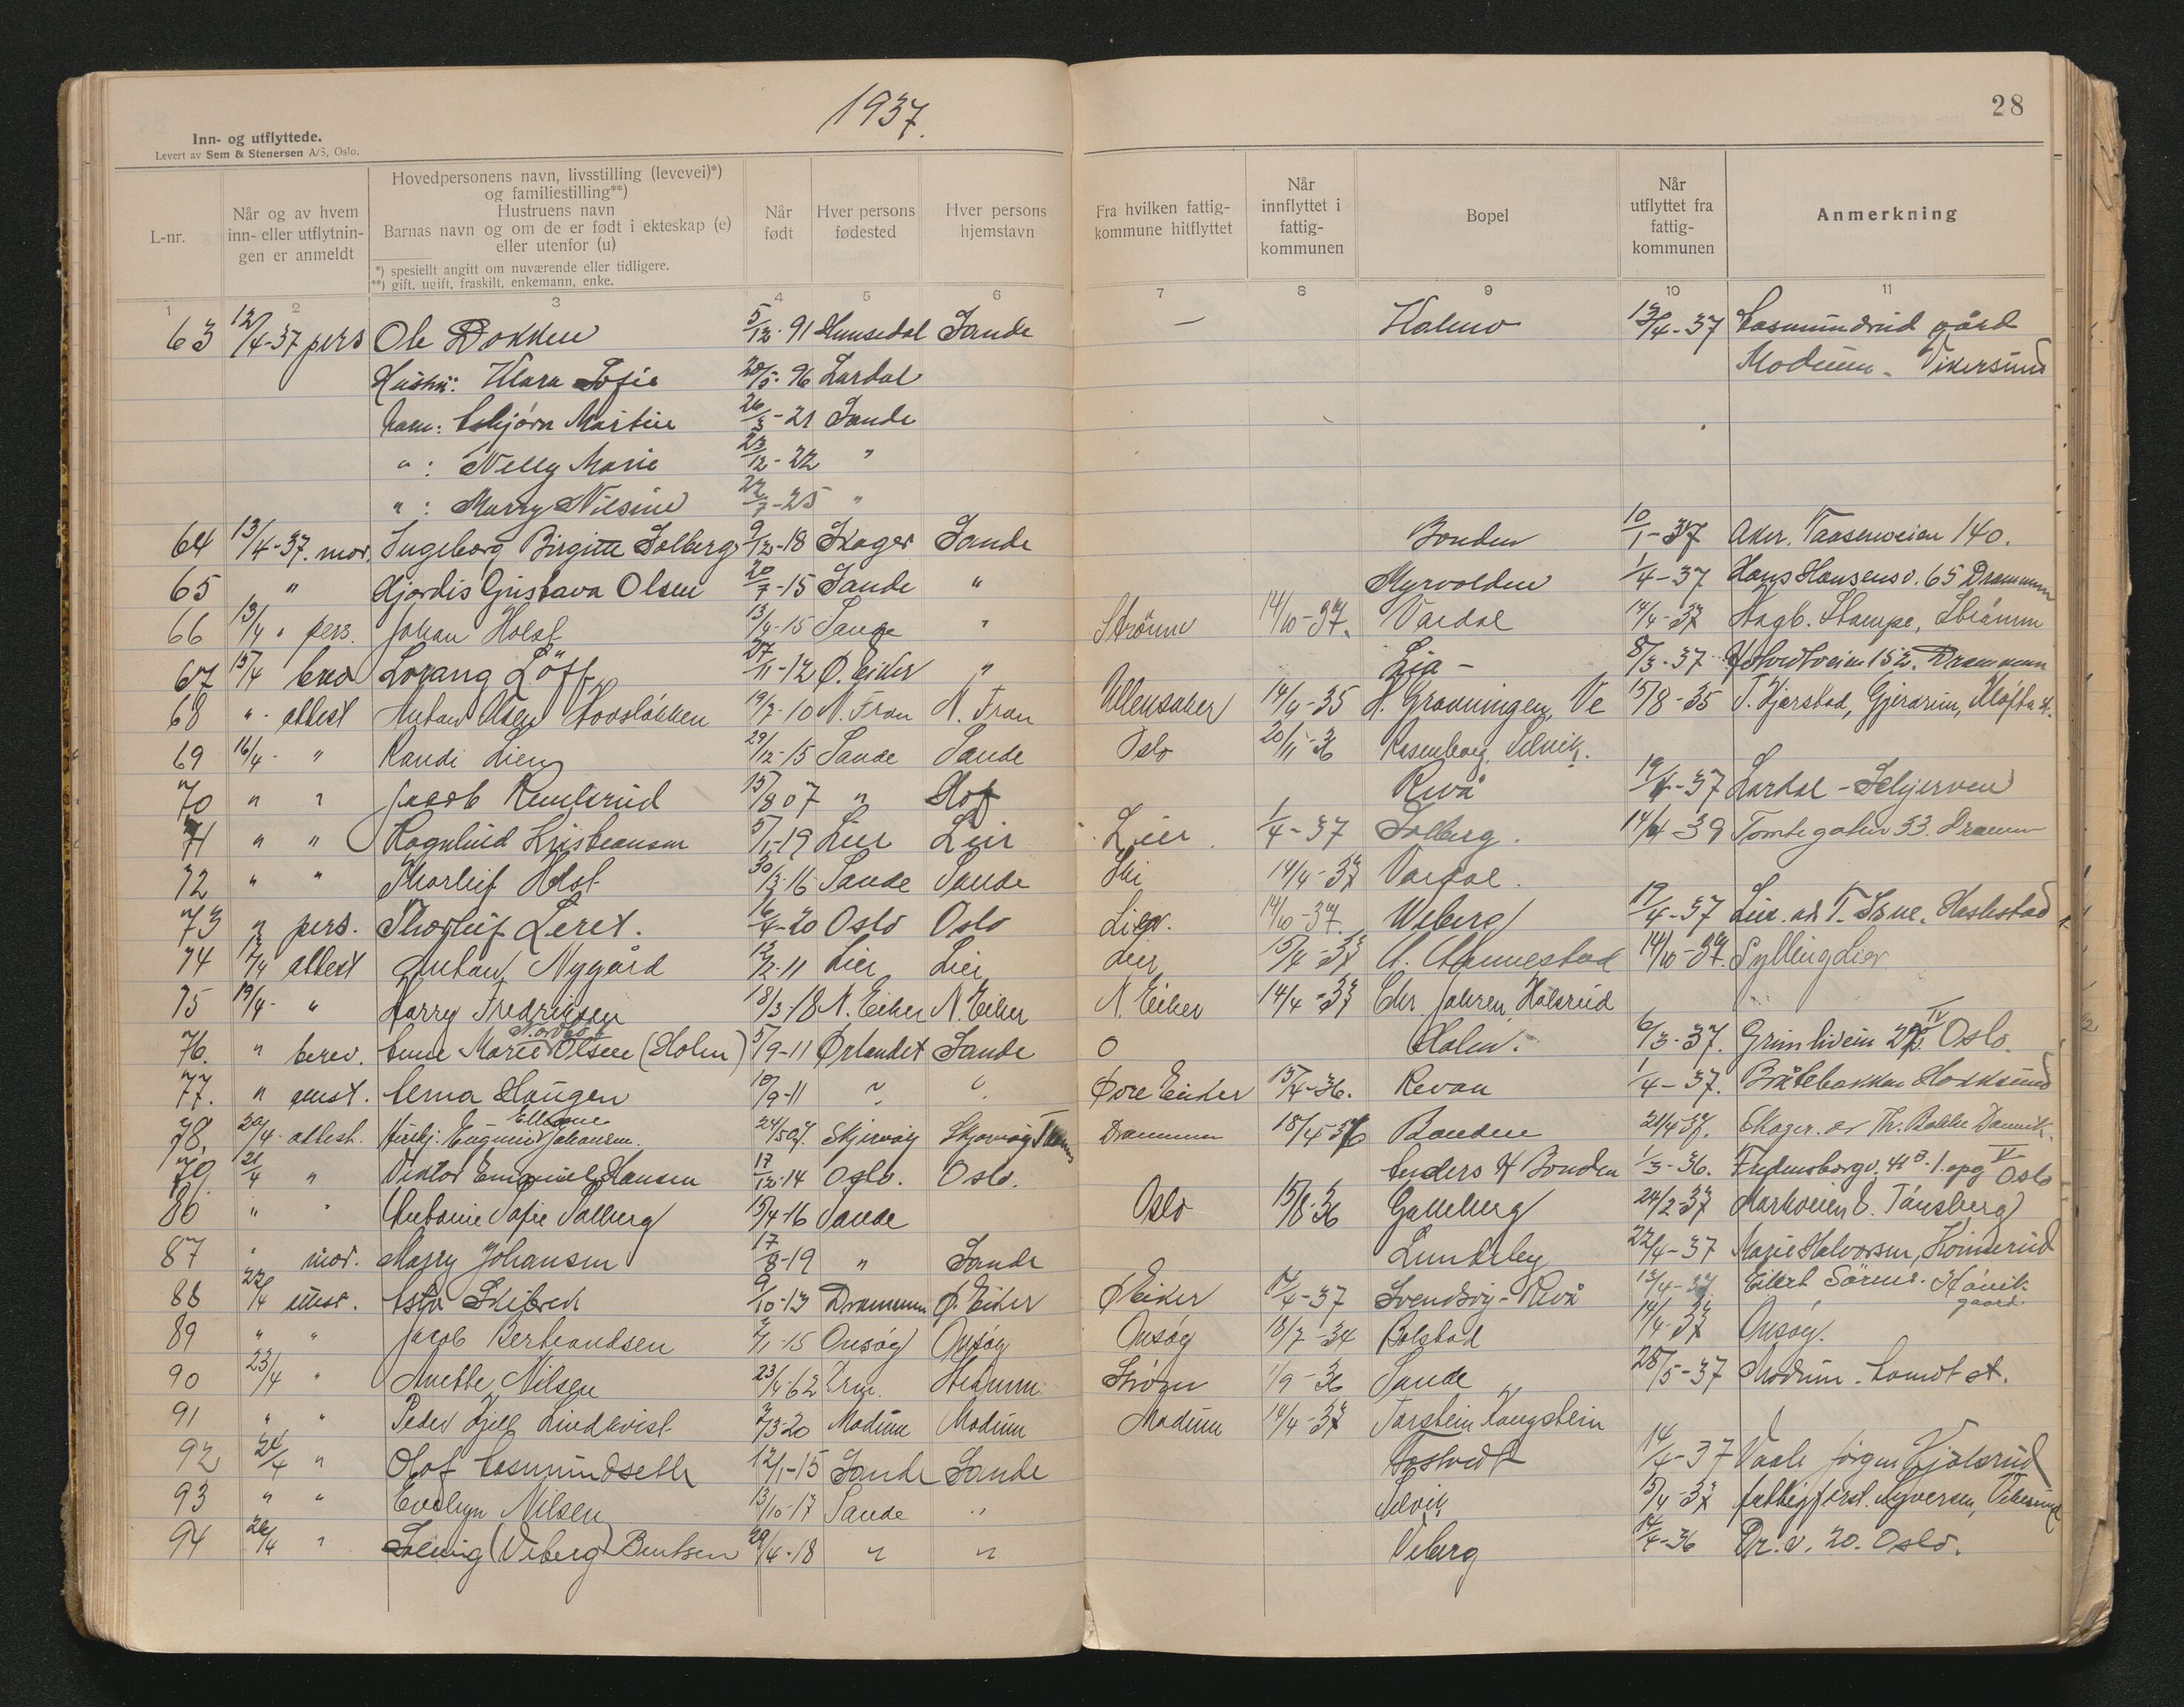 1937.
28
Inn- og utflyttede.
Levert av Sem & Stenersen A/S, Oslo.
L-nr.
Når og av hvem inn- eller utflytningen er anmeldt
Hovedpersonens navn, livsstilling (levevei)*) og familiestilling**)
Hustruens navn
Barnas navn og om de er født i ekteskap (e) eller utenfor (u)
*) spesiellt angitt om nuværende eller tidligere.
**) gift, ugift, fraskilt, enkemann, enke.
Når født
Hver persons fødested
Hver persons hjemstavn
Fra hvilken fattigkommune hitflyttet
Når innflyttet i fattigkommunen
Bopel
Når utflyttet fra fattigkommunen
Anmerkning
1 2 3 4 5 6 7 8 9 10 11
63 12/4-37 pers Ole Dokken 5/12-91 Hemsedal Sande — Holmo 13/4-37 Aasmundrud gård
Modum - Vikersund
Hustru: Klara Sofie 20/5-96 Lardal
Barn: Asbjørn Martin 26/3-21 Sande
" : Nelly Marie 23/12-22 "
" : Marry Nilsine 22/7-25 "
64 13/4-37. mor. Ingeborg Birgitte Solberg 9/12-18 Skoger Sande Bonden 10/1-37 Aker. Taasenveien 140.
65 " Hjørdis Gustava Olsen 20/7-15 Sande " Myrvolden 1/4-37 Hans Hansens v. 65 Drammen
66 13/4 " pers. Johan Holst 13/4-15 Sande " Strømm 14/10-37. Vardal 14/4-37 Hagb. Stampe, Strömm
67 15/4 Lorang Löff 27/11-12 Ø. Eiker " Lia - 8/3-37 152. Drammen
68 " attest Anton Olsen 19/7-10 N. Fron N. Fron Ullensaker 14/4-35 H. Gravningen, Ve 15/8-35 T. Hjerstad, Gjerdrum, Kløfta st.
69 16/4- " Randi Lien 29/12-15 Sande Sande Oslo 20/11-36 Rosenborg, Selvik.
70 " " Jacob Remlsrud 15/8 07 " Hof Revå 19/4-37 Lardal -
71 " " Ragnhild Kristiansen 5/1-19 Lier Lier Lier 1/4-37 Solberg. 14/4-39 Tomtegaten 33. Dramm
72 " " Thorleif Holst 30/3-16 Sande Sande Ski 14/4-37 Vardal.
73 " pers. Thorleif Leret. 16/4-20 Oslo Oslo Lier. 14/10-37. Weberg 19/4-37 Lier. Haslestad
74 17/4 attest Anton Nygård 12/2-11 Lier Lier Lier 15/4-37 A. Annestad 14/10-37. Sylling Lier
75 19/4- " Harry Fredriksen 18/3-18 N. Eiker N. Eiker N. Eiker 14/4-37 Chr. Johren, Holsrud
76. " brev. Anne Marie Nordbø Olsen (Holm) 5/9-11 Ørlandet Sande O Holm. 6/3-37. 27 IV Oslo.
77. " attest. Anna Haugen 10/9-11 " " Øvre Eiker 15/4-36. Revaa 1/4-37. Bråtebakken Hokksund
78, 20/4- attest. Hesikj. Eugenie Ellerine Johansen. 24/5 07. Skjervøy Skjervøy Troms Drammen 18/4-36 Bonden 21/4-37. Skoger
79. 21/4 " Viktor Emanuel Hansen 17/12-14 Oslo. Oslo. Anders H Bonden 1/3-36. Fredensborgv. 41 B-1. opg V Oslo
86 " " Antonie Sofie Solberg 13/4-16 Sande Oslo 15/8-36 Galleberg 24/2-37 Markveien 6. Tønsberg
87 " mor. Marry Johansen 17/8-19 " Sande Lunderby 22/4-37 Marie Halvorsen,
88 22/4 Skibrek 9/10-13 Drammen Ø. Eiker Ø Eiker 14/4-37 Svendsvig - Revå 13/4-37 gaard
89 " " Jacob Bertrandsen 2/1-15 Onsøy Onsøy Onsøy 18/7-34 Bolstad 14/4-37 Onsøy.
90 23/4 " Anette Nilsen 23/4-62 Drm. Strömm 1/9-36 Sande 28/5-37 Modum.
91 " " Peder Kjell Lindkvist 2/3-20 Modum Modum Modum 14/4-37 Torstein Haugstein
92 24/4 " Olaf Aasmundseth 12/1-15 Sande Sande 14/4-37 Vaale Jørgen
93 " " Evelyn Nilsen 13/10-17 Sande " Selvik 15/4-37 fattigforst. Syversen, Vikersund
94 26/4 " Solveig (Viberg) Bentsen 29/4-18 " " Viberg 14/4-36 Dr. v. 20. Oslo.